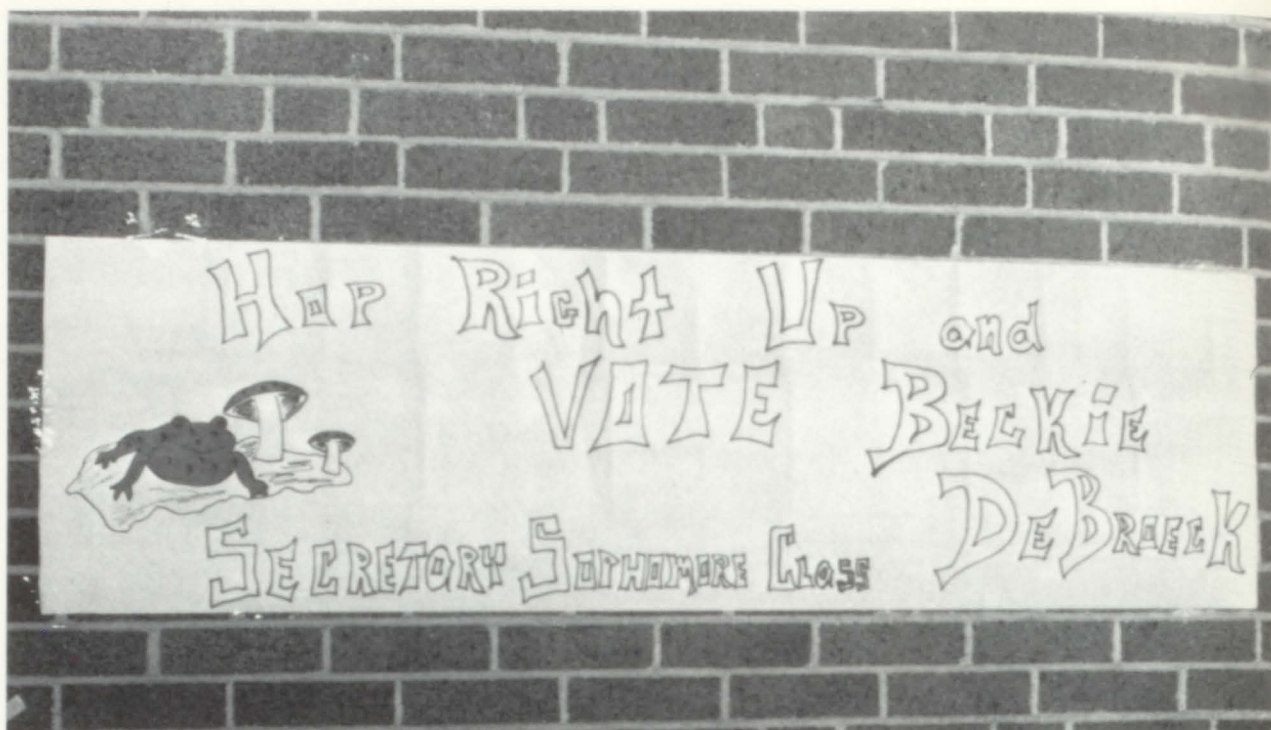 Hop Right Up and
VOTE BECKIE
DEBROECK
SECRETORY SOPHOMORE CLASS